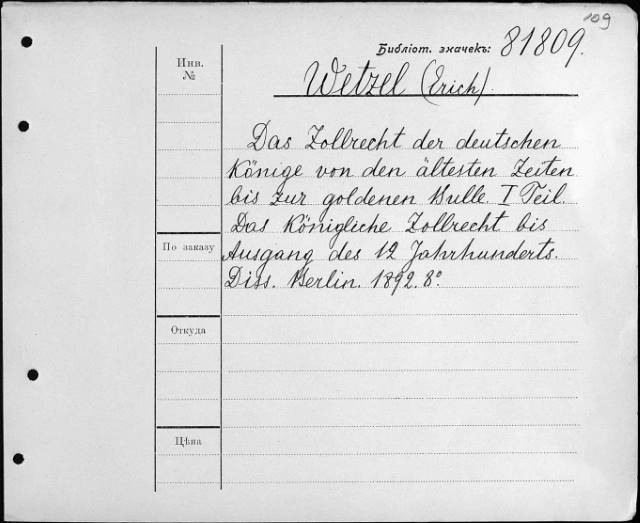 109
Инв.
№
Библіот. значекъ: 81809.
Wetzel (Erich).
Das Zollrecht der deutschen
Könige von den ältesten Zeiten
bis zur goldenen Bulle. I Teil.
Das Königliche Zollrecht bis
Ausgang des 12 Jahrhunderts.
Diss. Berlin. 1892. 8°.
По заказу
Откуда
Цѣна